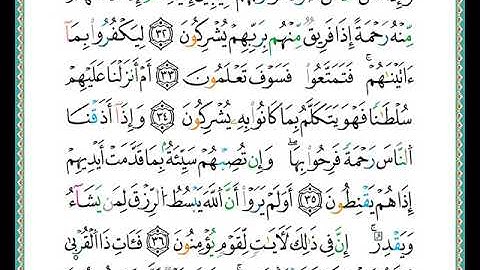 مِّنْهُ رَحْمَةً إِذَا فَرِيقٌ مِّنْهُم بِرَبِّهِمْ يُشْرِكُونَ ٣٣ لِيَكْفُرُوا۟ بِمَآ
ءَاتَيْنَٰهُمْ ۚ فَتَمَتَّعُوا۟ فَسَوْفَ تَعْلَمُونَ ٣٣ أَمْ أَنزَلْنَا عَلَيْهِمْ
سُلْطَٰنًا فَهُوَ يَتَكَلَّمُ بِمَا كَانُوا۟ بِهِۦ يُشْرِكُونَ ٣٤ وَإِذَآ أَذَقْنَا
ٱلنَّاسَ رَحْمَةً فَرِحُوا۟ بِهَا ۖ وَإِن تُصِبْهُمْ سَيِّئَةٌۢ بِمَا قَدَّمَتْ أَيْدِيهِمْ
إِذَا هُمْ يَقْنَطُونَ ٣٥ أَوَلَمْ يَرَوْا۟ أَنَّ ٱللَّهَ يَبْسُطُ ٱلرِّزْقَ لِمَن يَشَآءُ
وَيَقْدِرُ ۚ إِنَّ فِى ذَٰلِكَ لَءَايَٰتٍ لِّقَوْمٍ يُؤْمِنُونَ ٣٦ فَـَٔاتِ ذَا ٱلْقُرْبَىٰ